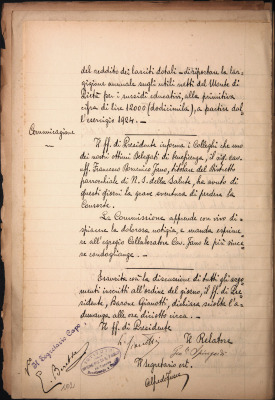 del reddito dei lasciti dotali - di riportare la lar-
gizione annuale sugli utili netti del Monte di
Pietà per i sussidi educativi, alla primitiva
cifra di lire 12000 (dodicimila), a partire dal-
l'esercizio 1924.-
Comunicazione
Il ff. di Presidente informa i Colleghi che uno
dei nostri ottimi Delegati di beneficenza, il sig. cav.
uff. Francesco Domenico Jano, titolare del Distretto
parrocchiale di N. S. della Salute, ha avuto di
questi giorni la grave sventura di perdere la
Consorte.
La Commissione apprende con vivo di-
spiacere la dolorosa notizia, e manda esprime-
re all'egregio Collaboratore Cav. Jano le più since-
re condoglianze.-
Esaurita così la discussione di tutti gli argo-
menti inscritti all'ordine del giorno, il ff. di Pre-
sidente, Barone Gianotti, dichiara sciolta l'a-
dunanza alle ore diciotto circa.-
Il ff. di Presidente
Il Relatore
Il Segretario Capo
Il segretario